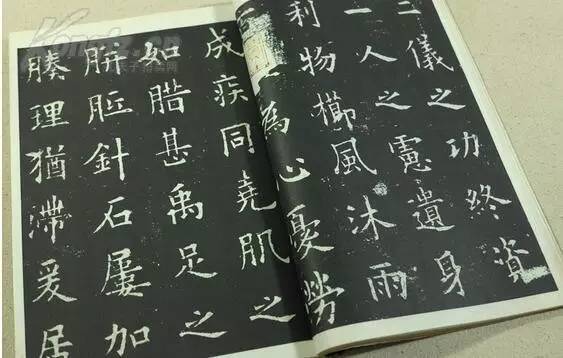 二儀之功終資
一人之慮遺身
利物櫛風沐雨
為心憂勞
成疾同堯肌之
如腊甚禹足之
胼胝針石屢加
腠理猶滯爰居